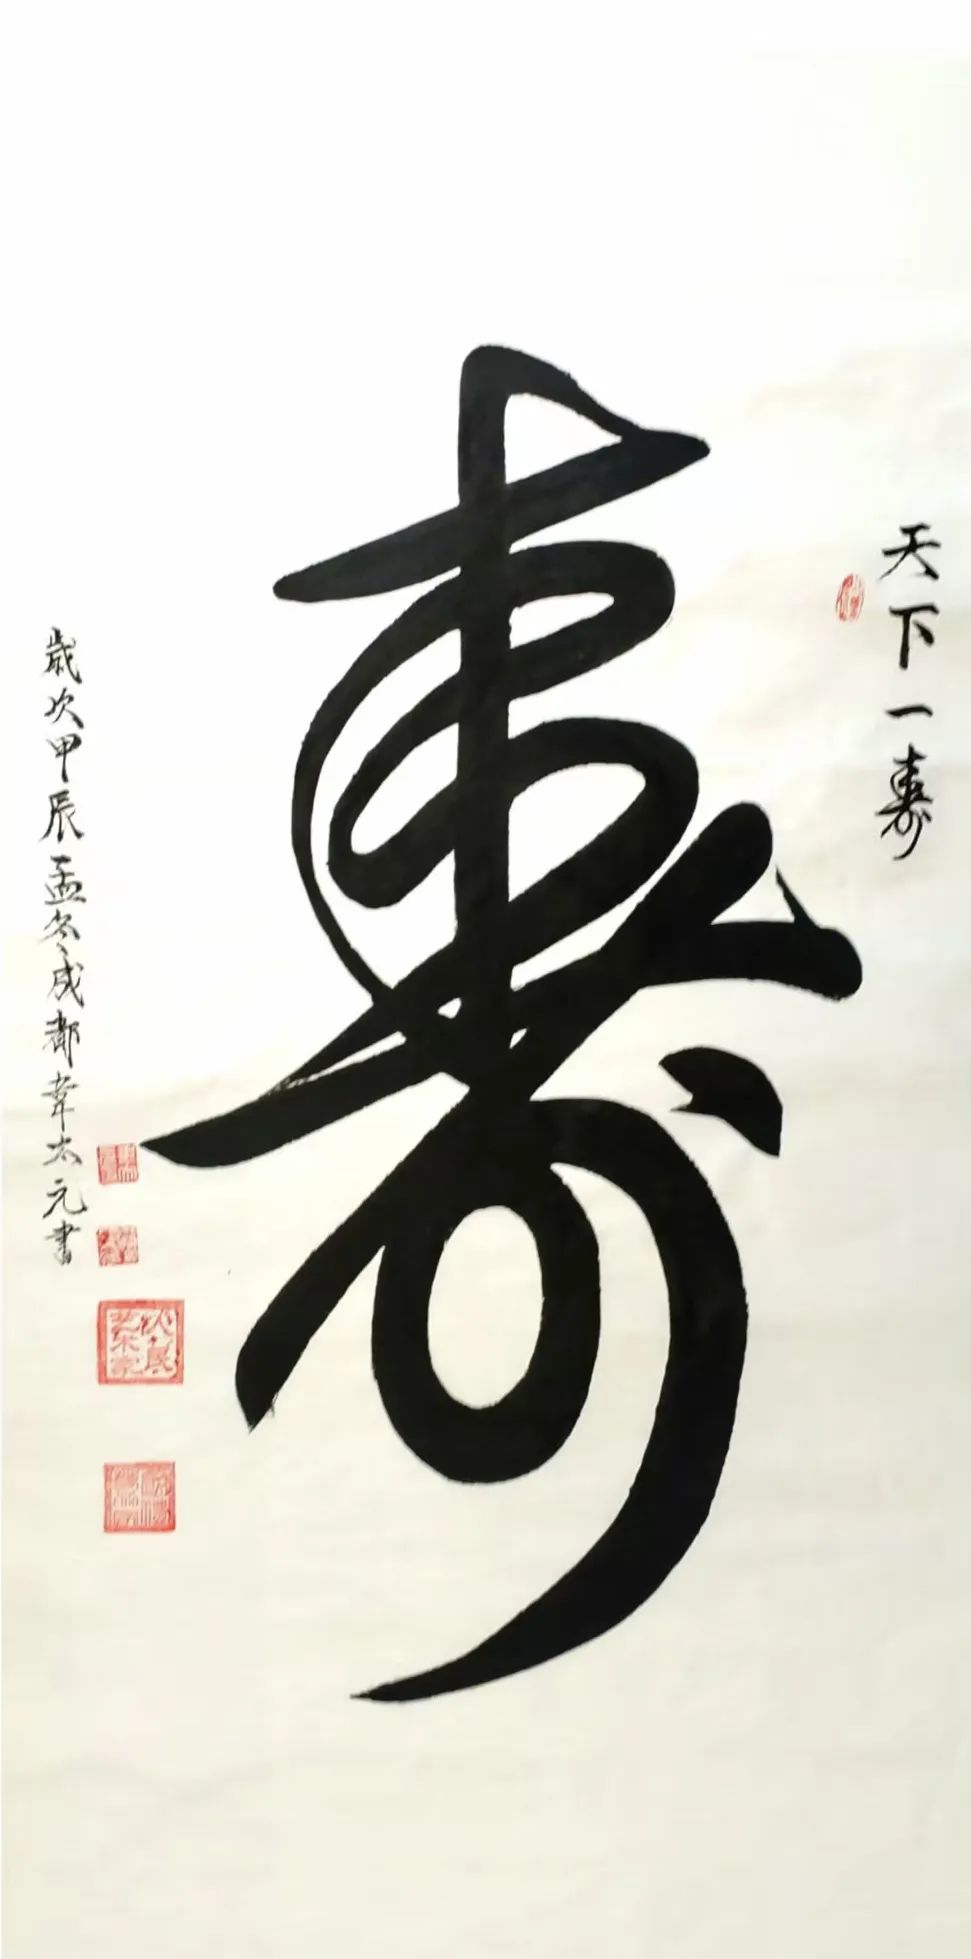 天下一寿
寿
歲次甲辰孟冬成都韋太元書